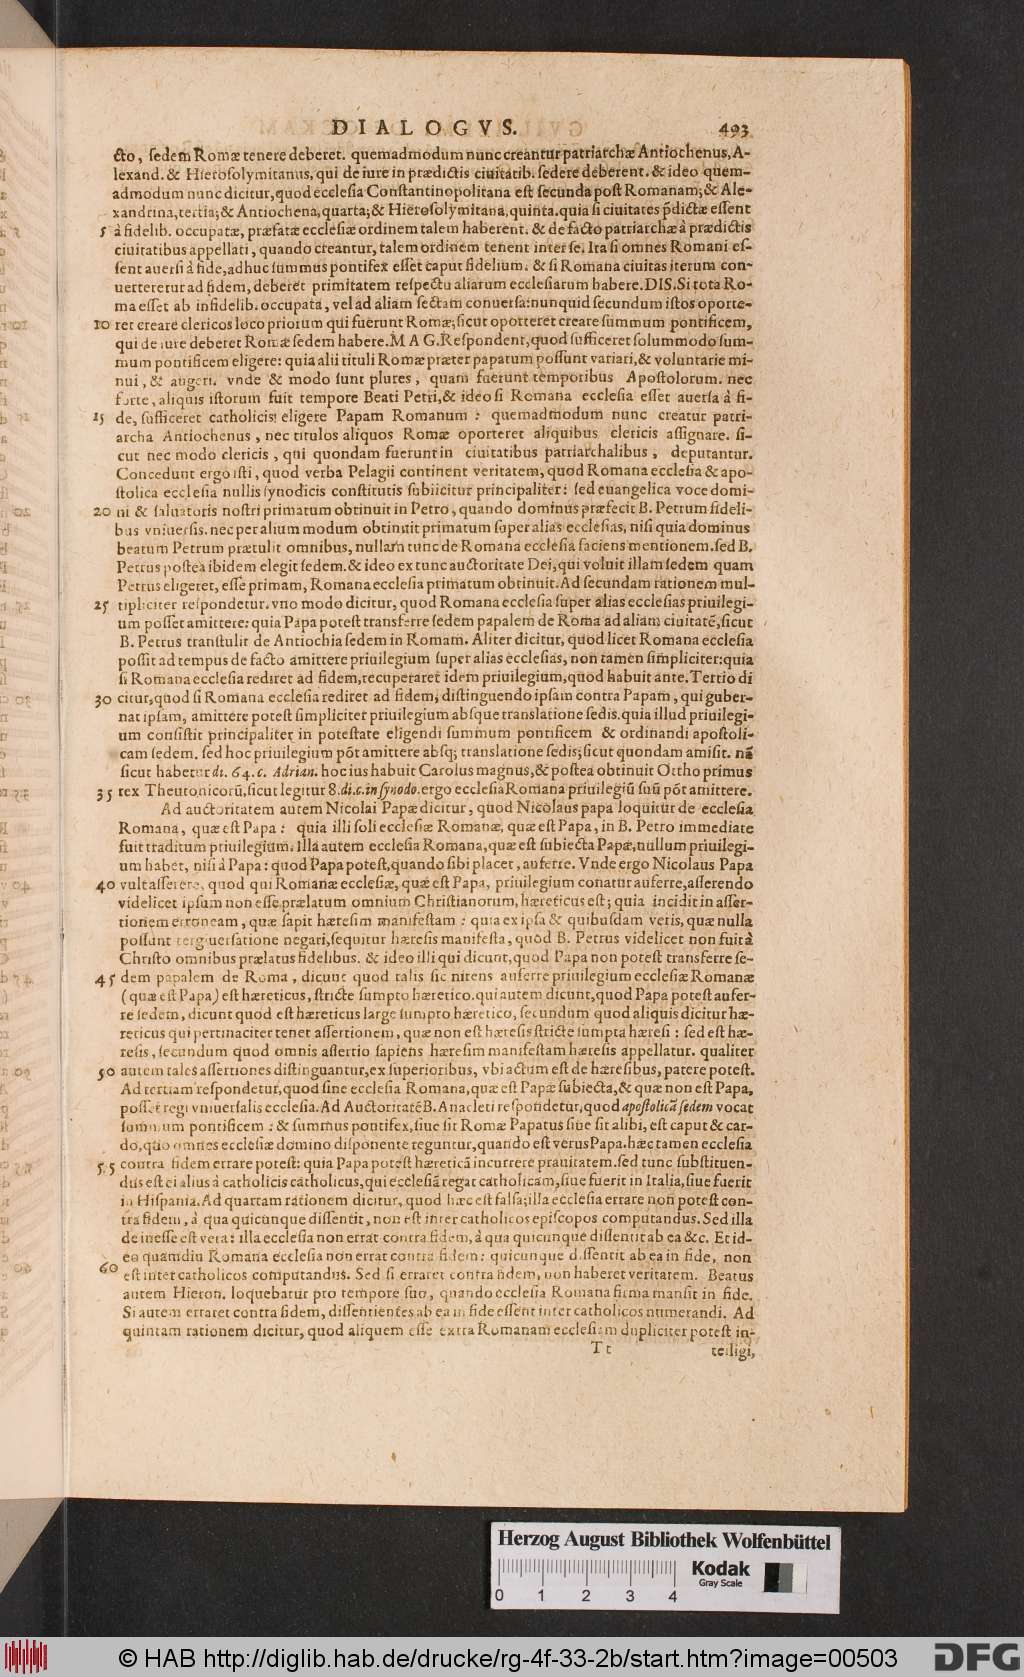 DIALOGVS. 493
cto, sedem Romæ tenere deberet. quemadmodum nunc creantur patriarchæ Antiochenus, A-
lexand. & Hierosolymitanus, qui de iure in prædictis ciuitatib. sedere deberent. & ideo quem-
admodum nunc dicitur, quod ecclesia Constantinopolitana est secunda post Romanam; & Ale-
xandrina, tertia; & Antiochena, quarta; & Hierosolymitana, quinta. quia si ciuitates p̃dictæ essent
5 à fidelib. occupatæ, præfatæ ecclesiæ ordinem talem haberent. & de facto patriarchæ à prædictis
ciuitatibus appellati, quando creantur, talem ordinem tenent inter se. Ita si omnes Romani es-
sent auersi à fide, adhuc summus pontifex esset caput fidelium. & si Romana ciuitas iterum con-
uerteretur ad fidem, deberet primitatem respectu aliarum ecclesiarum habere. DIS. Si tota Ro-
ma esset ab infidelib. occupata, vel ad aliam sectam conuersa: nunquid secundum istos oporte-
10 ret creare clericos loco priorum qui fuerunt Romæ; sicut oporteret creare summum pontificem,
qui de iure deberet Romæ sedem habere. MAG. Respondent, quod sufficeret solummodo sum-
mum pontificem eligere: quia alii tituli Romæ præter papatum possunt variari, & voluntarie mi-
nui, & augeri. vnde & modo sunt plures, quam fuerunt temporibus Apostolorum. nec
forte, aliquis istorum fuit tempore Beati Petri, & ideo si Romana ecclesia esset auersa à fi-
15 de, sufficeret catholicis eligere Papam Romanum: quemadmodum nunc creatur patri-
archa Antiochenus, nec titulos aliquos Romæ oporteret aliquibus clericis assignare. si-
cut nec modo clericis, qui quondam fuerunt in ciuitatibus patriarchalibus, deputantur.
Concedunt ergo isti, quod verba Pelagii continent veritatem, quod Romana ecclesia & apo-
stolica ecclesia nullis synodicis constitutis subiicitur principaliter: sed euangelica voce domi-
20 ni & saluatoris nostri primatum obtinuit in Petro, quando dominus præfecit B. Petrum fideli-
bus vniuersis. nec per alium modum obtinuit primatum super alias ecclesias, nisi quia dominus
beatum Petrum prætulit omnibus, nullam tunc de Romana ecclesia faciens mentionem. sed B.
Petrus postea ibidem elegit sedem. & ideo ex tunc auctoritate Dei, qui voluit illam sedem quam
Petrus eligeret, esse primam, Romana ecclesia primatum obtinuit. Ad secundam rationem mul-
25 tipliciter respondetur. vno modo dicitur, quod Romana ecclesia super alias ecclesias priuilegi-
um posset amittere: quia Papa potest transferre sedem papalem de Roma ad aliam ciuitatẽ, sicut
B. Petrus transtulit de Antiochia sedem in Romam. Aliter dicitur, quod licet Romana ecclesia
possit ad tempus de facto amittere priuilegium super alias ecclesias, non tamen simpliciter: quia
si Romana ecclesia rediret ad fidem, recuperaret idem priuilegium, quod habuit ante. Tertio di
30 citur, quod si Romana ecclesia rediret ad fidem, distinguendo ipsam contra Papam, qui guber-
nat ipsam, amittere potest simpliciter priuilegium absque translatione sedis. quia illud priuilegi-
um consistit principaliter in potestate eligendi summum pontificem & ordinandi apostoli-
cam sedem. sed hoc priuilegium põt amittere absq; translatione sedis; sicut quondam amisit. nã
sicut habetur di. 64. c. Adrian. hoc ius habuit Carolus magnus, & postea obtinuit Ottho primus
35 rex Theutonicorũ, sicut legitur 8. di. c. in synodo. ergo ecclesia Romana priuilegiũ suũ põt amittere.
Ad auctoritatem autem Nicolai Papæ dicitur, quod Nicolaus papa loquitur de ecclesia
Romana, quæ est Papa: quia illi soli ecclesiæ Romanæ, quæ est Papa, in B. Petro immediate
fuit traditum priuilegium. Illa autem ecclesia Romana, quæ est subiecta Papæ, nullum priuilegi-
um habet, nisi à Papa: quod Papa potest, quando sibi placet, auferre. Vnde ergo Nicolaus Papa
40 vult asserere, quod qui Romanæ ecclesiæ, quæ est Papa, priuilegium conatur auferre, asserendo
videlicet ipsum non esse prælatum omnium Christianorum, hæreticus est; quia incidit in asser-
tionem erroneam, quæ sapit hæresim manifestam: quia ex ipsa & quibusdam veris, quæ nulla
possunt tergiuersatione negari, sequitur hæresis manifesta, quod B. Petrus videlicet non fuit à
Christo omnibus prælatus fidelibus. & ideo illi qui dicunt, quod Papa non potest transferre se-
45 dem papalem de Roma, dicunt quod talis sic nitens auferre priuilegium ecclesiæ Romanæ
(quæ est Papa) est hæreticus, stricte sumpto hæretico. qui autem dicunt, quod Papa potest aufer-
re sedem, dicunt quod est hæreticus large sumpto hæretico, secundum quod aliquis dicitur hæ-
reticus qui pertinaciter tenet assertionem, quæ non est hæresis stricte sumpta hæresi: sed est hæ-
resis, secundum quod omnis assertio sapiens hæresim manifestam hæresis appellatur. qualiter
50 autem tales assertiones distinguantur, ex superioribus, vbi actum est de hæresibus, patere potest.
Ad tertiam respondetur, quod sine ecclesia Romana, quæ est Papæ subiecta, & quæ non est Papa,
posset regi vniuersalis ecclesia. Ad Auctoritatẽ B. Anacleti respondetur, quod apostolicã sedem vocat
summum pontificem: & summus pontifex, siue sit Romæ Papatus siue sit alibi, est caput & car-
do, quo omnes ecclesiæ domino disponente reguntur, quando est verus Papa. hæc tamen ecclesia
55 contra fidem errare potest: quia Papa potest hæreticã incurrere prauitatem. sed tunc substituen-
dus est ei alius à catholicis catholicus, qui ecclesiã regat catholicam, siue fuerit in Italia, siue fuerit
in Hispania. Ad quartam rationem dicitur, quod hæc est falsa; illa ecclesia errare non potest con-
tra fidem, à qua quicunque dissentit, non est inter catholicos episcopos computandus. Sed illa
de inesse est vera: illa ecclesia non errat contra fidem, à qua quicunque dissentit ab ea &c. Et id-
eo quamdiu Romana ecclesia non errat contra fidem: quicunque dissentit ab ea in fide, non
60 est inter catholicos computandus. Sed si erraret contra fidem, non haberet veritatem. Beatus
autem Hieron. loquebatur pro tempore suo, quando ecclesia Romana firma mansit in fide.
Si autem erraret contra fidem, dissentientes ab ea in fide essent inter catholicos numerandi. Ad
quintam rationem dicitur, quod aliquem esse extra Romanam ecclesiam dupliciter potest in-
Tt telligi,
Herzog August Bibliothek Wolfenbüttel
Kodak
Gray Scale
0 1 2 3 4
© HAB http://diglib.hab.de/drucke/rg-4f-33-2b/start.htm?image=00503
DFG